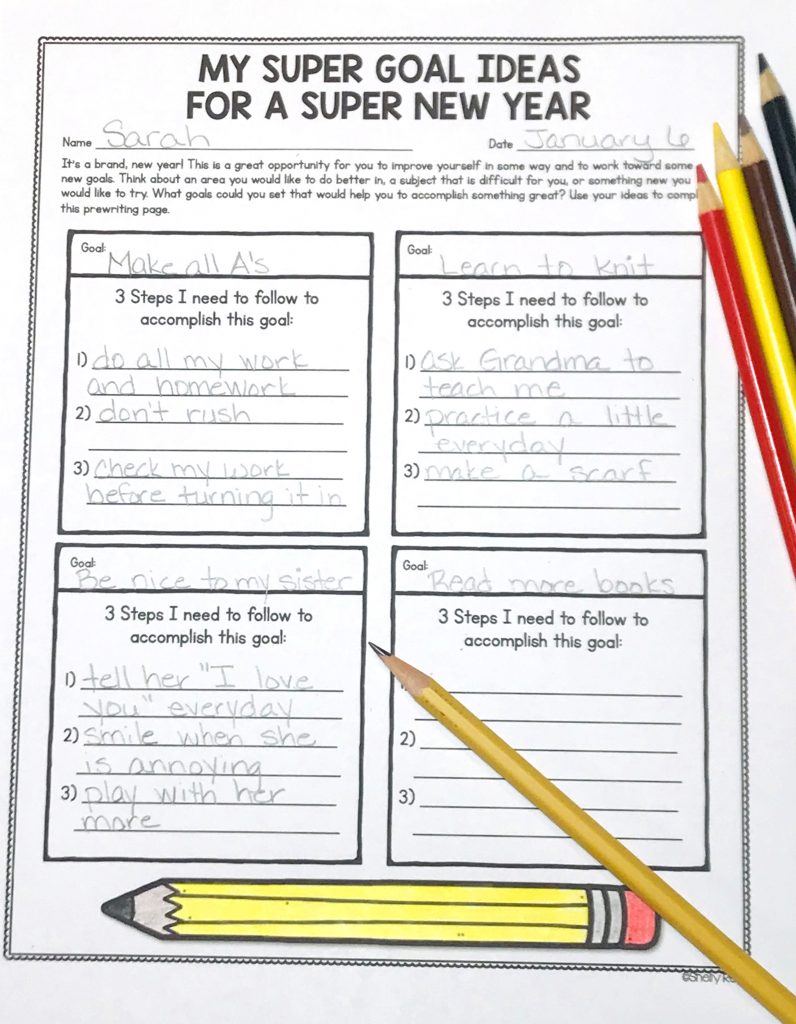 MY SUPER GOAL IDEAS
FOR A SUPER NEW YEAR
Name Sarah Date January 6
It's a brand, new year! This is a great opportunity for you to improve yourself in some way and to work toward some
new goals. Think about an area you would like to do better in, a subject that is difficult for you, or something new you
would like to try. What goals could you set that would help you to accomplish something great? Use your ideas to
this prewriting page.
Goal: Make all A's
3 Steps I need to follow to
accomplish this goal:
1) do all my work
and homework
2) don't rush
3) check my work
before turning it in
Goal: Learn to knit
3 Steps I need to follow to
accomplish this goal:
1) ask Grandma to
teach me
2) practice a little
everyday
3) make a scarf
Goal: Be nice to my sister
3 Steps I need to follow to
accomplish this goal:
1) tell her "I love
you" everyday
2) smile when she
is annoying
3) play with her
more
Goal: Read more books
3 Steps I need to follow to
accomplish this goal:
2)
3)